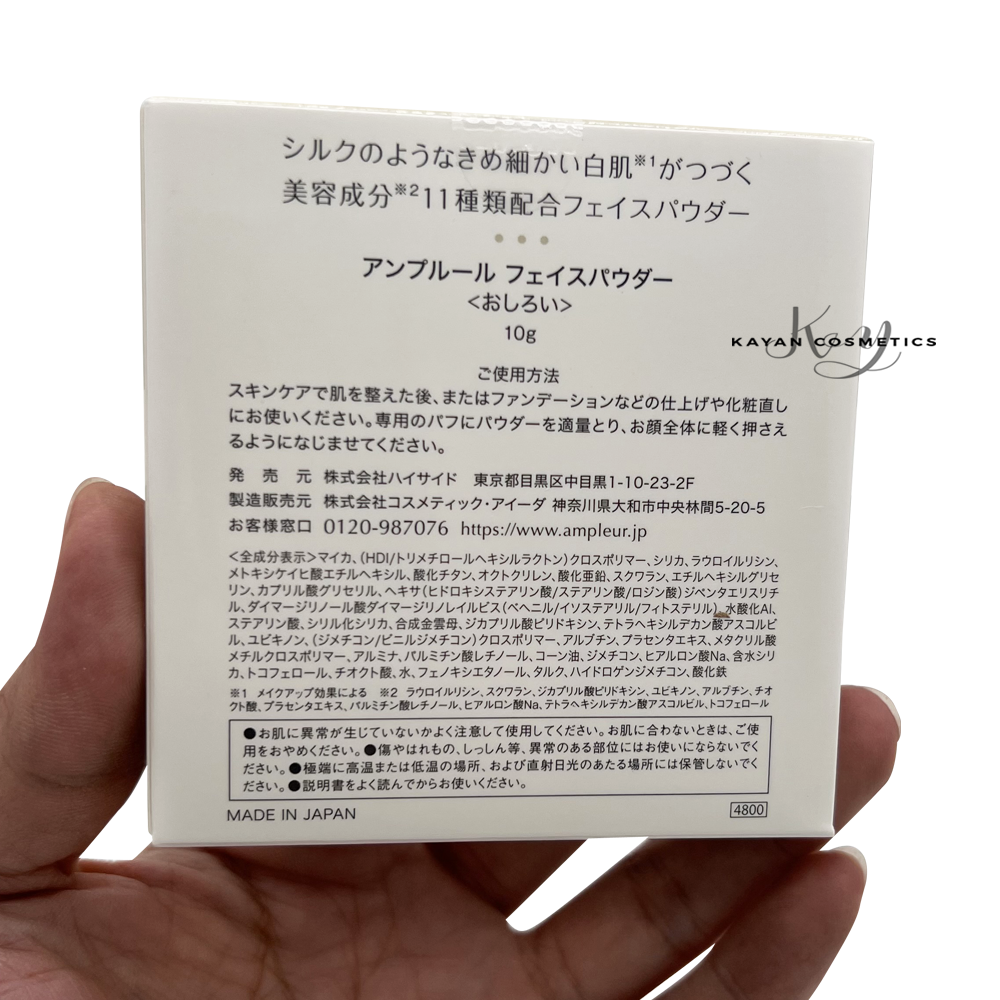 シルクのようなきめ細かい白肌※1がつづく
美容成分※2 11種類配合フェイスパウダー
アンプルール フェイスパウダー
<おしろい>
10g
KAYAN COSMETICS
ご使用方法
スキンケアで肌を整えた後、またはファンデーションなどの仕上げや化粧直し
にお使いください。専用のパフにパウダーを適量とり、お顔全体に軽く押さえ
るようになじませてください。
発 売 元 株式会社ハイサイド 東京都目黒区中目黒1-10-23-2F
製造販売元 株式会社コスメティック・アイーダ 神奈川県大和市中央林間5-20-5
お客様窓口 0120-987076 https://www.ampleur.jp
<全成分表示>マイカ、(HDI/トリメチロールヘキシルラクトン)クロスポリマー、シリカ、ラウロイルリシン、
メトキシケイヒ酸エチルヘキシル、酸化チタン、オクトクリレン、酸化亜鉛、スクワラン、エチルヘキシルグリセ
リン、カプリル酸グリセリル、ヘキサ(ヒドロキシステアリン酸/ステアリン酸/ロジン酸)ジペンタエリスリチ
ル、ダイマージリノール酸ダイマージリノレイルビス(ベヘニル/イソステアリル/フィトステリル)、水酸化Al、
ステアリン酸、シリル化シリカ、合成金雲母、ジカプリル酸ピリドキシン、テトラヘキシルデカン酸アスコルビ
ル、ユビキノン、(ジメチコン/ビニルジメチコン)クロスポリマー、アルブチン、プラセンタエキス、メタクリル酸
メチルクロスポリマー、アルミナ、パルミチン酸レチノール、コーン油、ジメチコン、ヒアルロン酸Na、含水シリ
カ、トコフェロール、チオクト酸、水、フェノキシエタノール、タルク、ハイドロゲンジメチコン、酸化鉄
※1 メイクアップ効果による ※2 ラウロイルリシン、スクワラン、ジカプリル酸ピリドキシン、ユビキノン、アルブチン、チオ
クト酸、プラセンタエキス、パルミチン酸レチノール、ヒアルロン酸Na、テトラヘキシルデカン酸アスコルビル、トコフェロール
●お肌に異常が生じていないかよく注意して使用してください。お肌に合わないときは、ご使
用をおやめください。●傷やはれもの、しっしん等、異常のある部位にはお使いにならないでく
ださい。●極端に高温または低温の場所、および直射日光のあたる場所には保管しないでく
ださい。●説明書をよく読んでからお使いください。
MADE IN JAPAN
4800